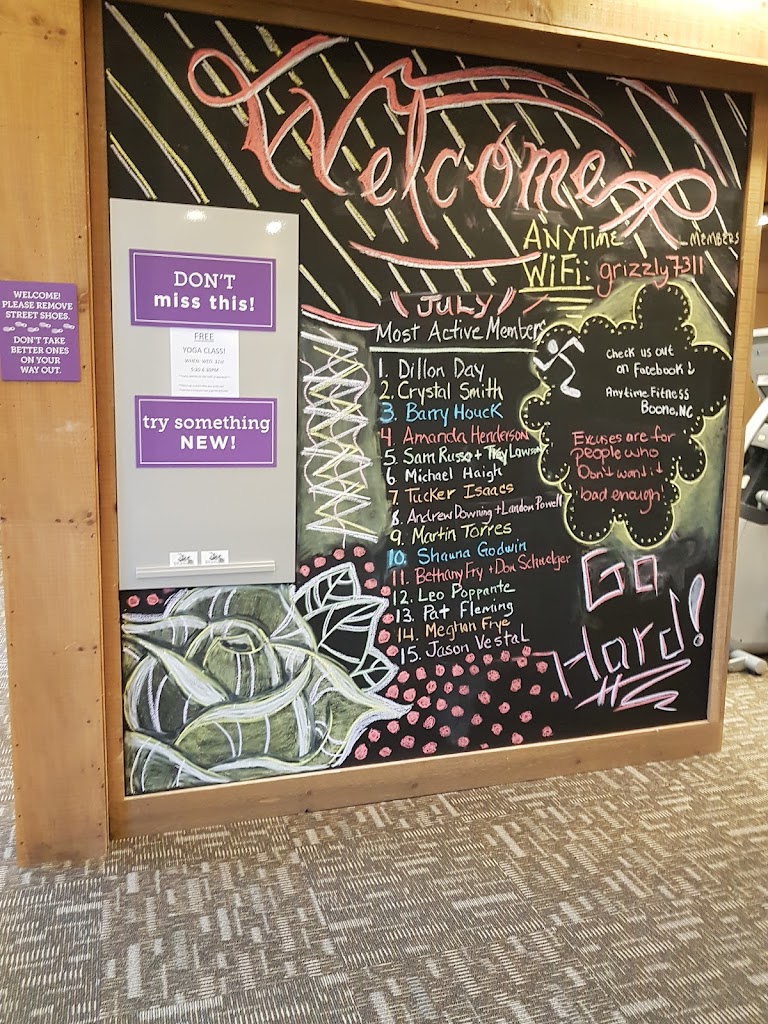 Welcome
ANYTIME MEMBERS
WiFi: grizzly7311
WELCOME!
PLEASE REMOVE
STREET SHOES.
DON'T TAKE
BETTER ONES
ON YOUR
WAY OUT.
DON'T
miss this!
FREE
YOGA CLASS!
try something
NEW!
JULY
Most Active Members
1. Dillon Day
2. Crystal Smith
3. Barry Houck
4. Amanda Henderson
5. Sam Russo + Trey Lawson
6. Michael Haigh
7. Tucker Isaacs
8. Andrew Downing + Landon Powell
9. Martin Torres
10. Shauna Godwin
11. Bethany Fry + Don Schwelger
12. Leo Poppante
13. Pat Fleming
14. Meghan Frye
15. Jason Vestal
Check us out
on Facebook
Anytime Fitness
Boone, NC
Excuses are for
people who
Don't want it
bad enough
Go
Hard!